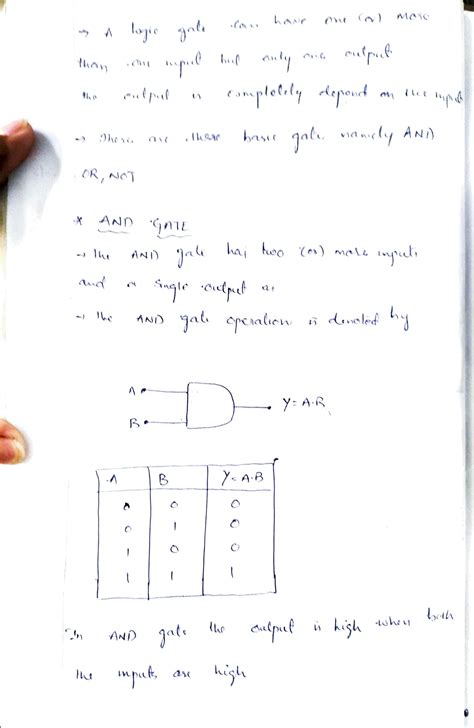 → A logic gate can have one (or) more
than one input but only one output
the output is completely depend on the input
→ There are three basic gate namely AND
OR, NOT
* AND GATE
→ The AND gate has two (or) more inputs
and a single output as
→ The AND gate operation is denoted by
A
B
Y = A.B
A B Y = A.B
0 0 0
0 1 0
1 0 0
1 1 1
In AND gate the output is high when both
the inputs are high